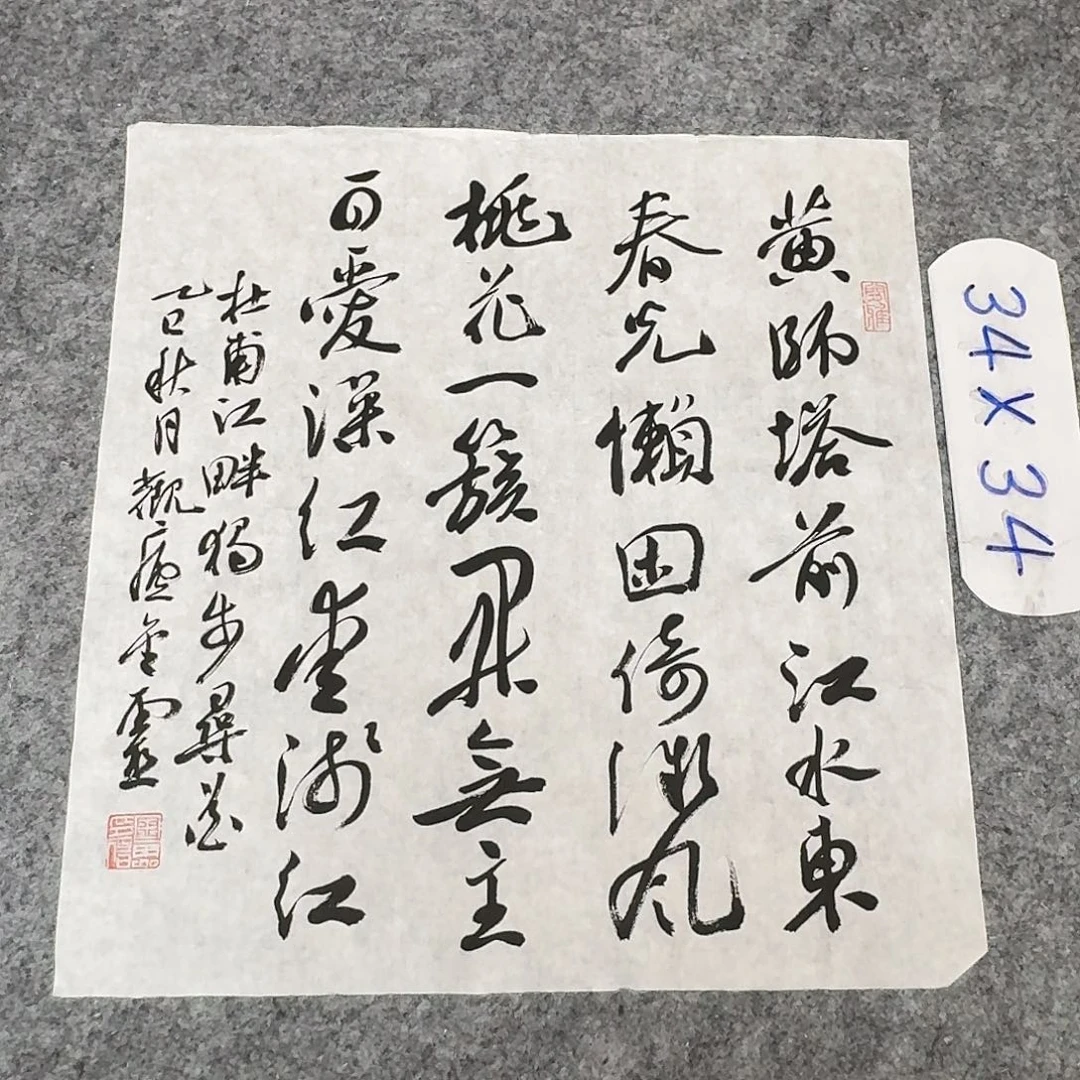 黄師塔前江水東
春光懶困倚微風
桃花一簇開無主
可愛深紅愛淺紅
杜甫江畔獨步尋花
乙巳秋月觀金靈
34X34